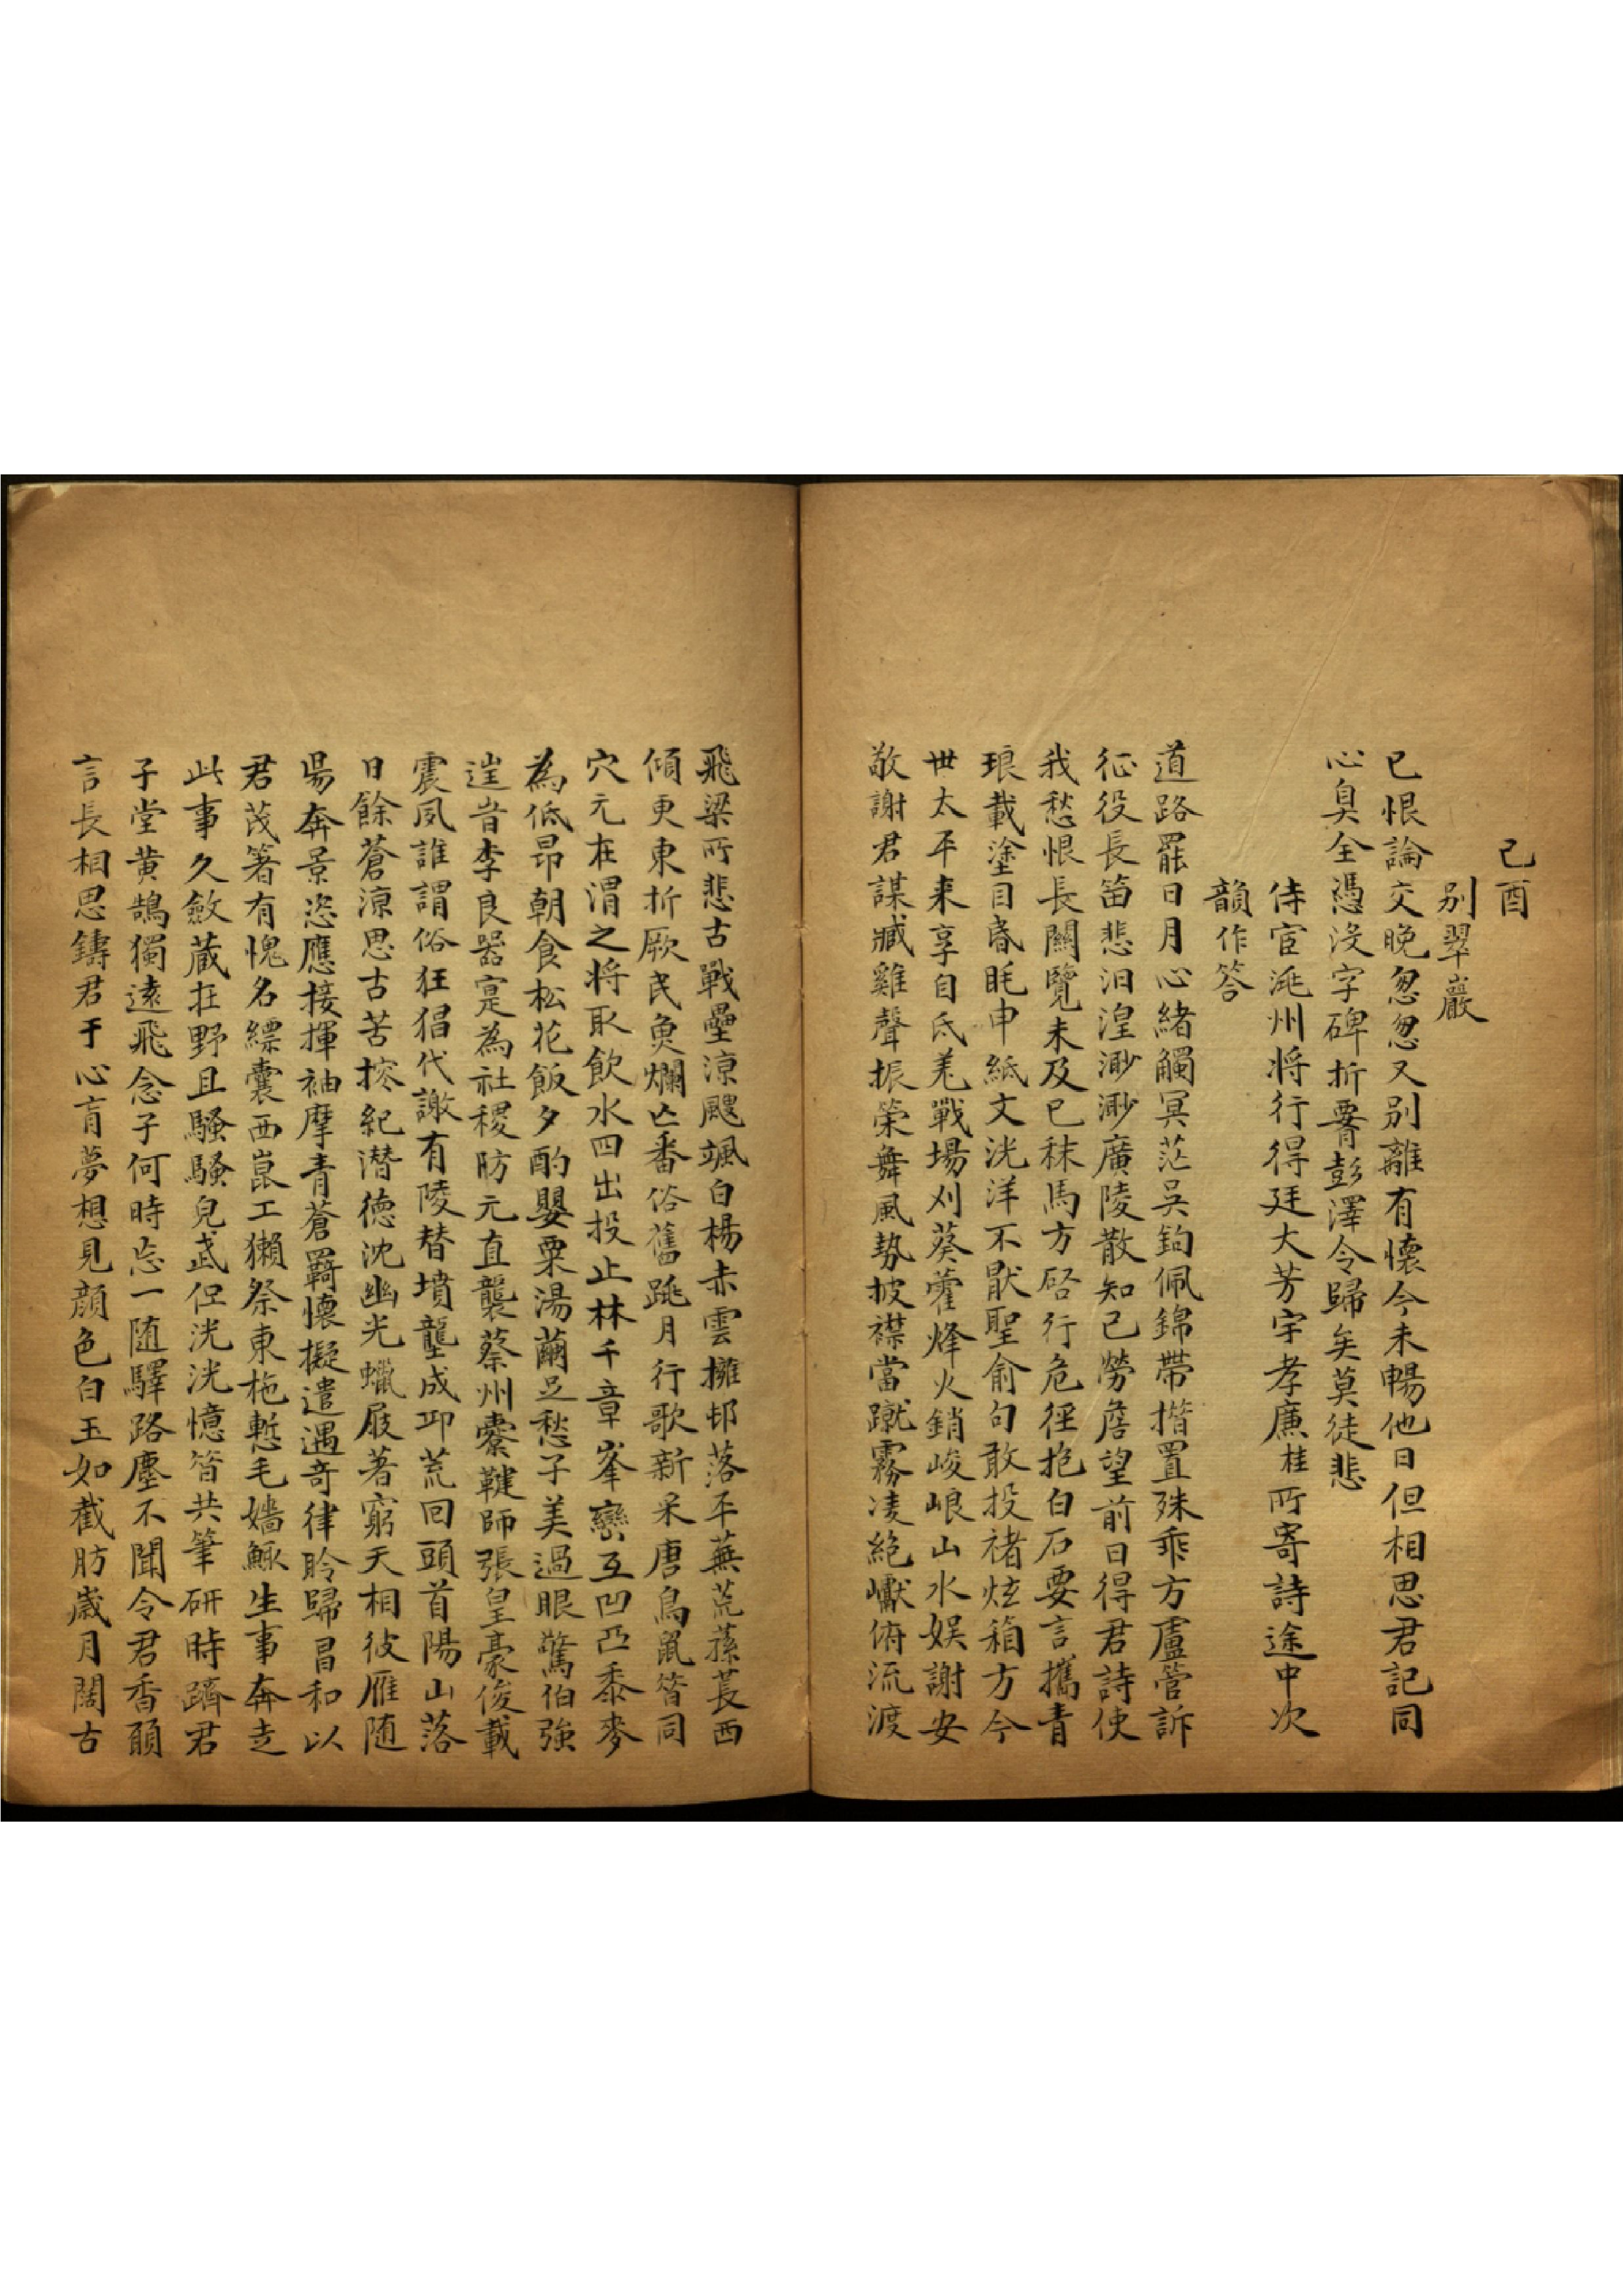 己酉
別翠巖
已恨論交晚忽忽又別離有懷今未暢他日但相思君記同
心臭全憑没字碑折要彭澤令歸矣莫徒悲
侍宦洮州将行得廷大芳宇孝廉桂所寄詩途中次
韻作答
道路罷日月心緒觸冥茫吴鉤佩錦帶措置殊乖方盧管訴
征役長笛悲汨湟渺渺廣陵散知己勞詹望前日得君詩使
我愁恨長闗覽未及已秣馬方啓行危徑抱白石要言攜青
琅載塗目昏眊申紙文洸洋不猒聖俞句敢投褚炫箱方今
世太平来享自氐羌戰場刈葵藿烽火銷峻崀山水娱謝安
敬謝君謀臧雞聲振榮舞風勢披襟當蹴霧凌絶巘俯流渡
飛梁所悲古戰壘涼飔颯白楊赤雲擁邨落平蕪荒蓀萇西
傾更東折厥民魚爛亡番俗舊跳月行歌新采唐鳥鼠皆同
穴元在渭之将取飲水四出投止林千章峯巒互凹凸黍麥
為低昂朝食松花飯夕酌罌粟湯繭足愁子美過眼驚伯強
逞昔李良器寔為社稷肪元直襲蔡州櫜鞬師張皇豪俊載
震夙誰謂俗狂猖代謝有陵替墳壟成邛荒回頭首陽山落
日餘蒼涼思古苦搲紀潜德沈幽光蠟屐著窮天相彼雁随
暘奔景恣應接揮袖摩青蒼羇懷擬遣遇奇律聆歸昌和以
君茂箸有愧名縹囊西崑工獺祭東柂慙毛嬙鯫生事奔走
此事久斂蔵在野且騷騷皃武但洸洸憶昔共筆研時躋君
子堂黄鵠獨遠飛念子何時忘一随驛路塵不聞令君香願
言長相思鑄君于心肓夢想見顔色白玉如截肪歲月闊古